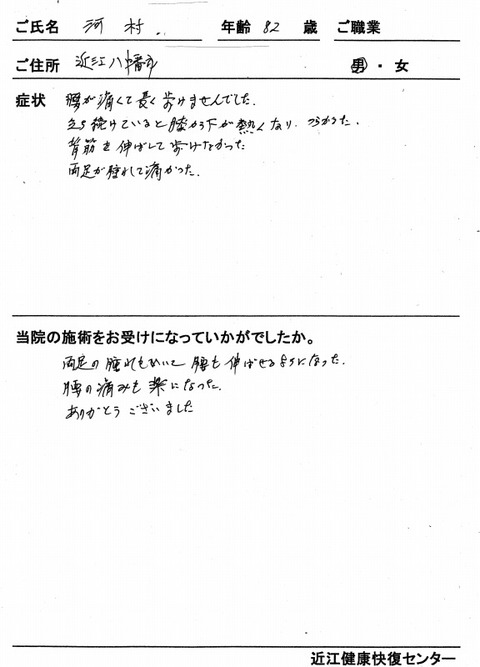 ご氏名 河村 年齢 82 歳 ご職業
ご住所 近江八幡市 男・女
症状 腰が痛くて長く歩けませんでした。
立ち続けていると膝から下が熱くなり、つらかった。
背筋を伸ばして歩けなかった
両足が腫れて痛かった。
当院の施術をお受けになっていかがでしたか。
両足の腫れもひいて腰も伸ばせるようになった。
腰の痛みも楽になった。
ありがとうございました
近江健康快復センター